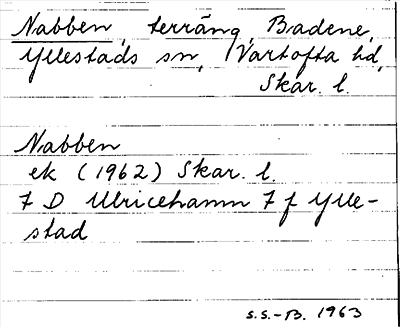 Nabben, terräng, Badene,
Yllestads sn, Vartofta hd,
Skar. l.
Nabben
ek (1962) Skar. l.
7 D Ulricehamn 7 f Ylle-
stad
S.S.-B. 1963